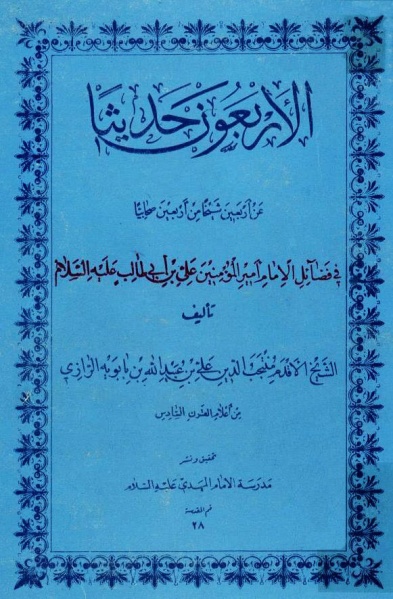 الأربعون حديثا
عن أربعين شيخا من أربعين صحابيا
في فضائل الإمام أمير المؤمنين علي بن أبي طالب عليه السلام
تأليف
الشيخ الأقدم منتجب الدين علي بن عبيد الله بن بابويه الرازي
من أعلام القرن السادس
تحقيق ونشر
مدرسة الامام المهدي عليه السلام
قم المقدسة
٢٨